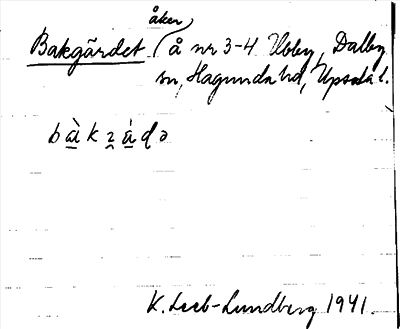 åker
Bakgärdet å nr 3-4 Visby, Dalby
sn, Hagunda hd, Upsala l.
bàkzádə
K. Leeb-Lundberg 1941.